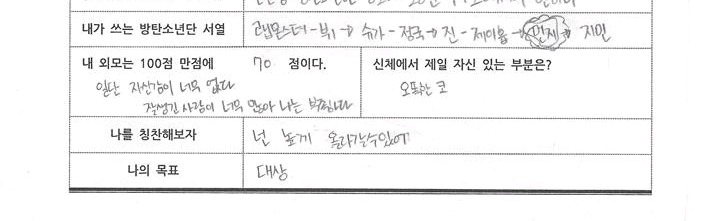 내가 쓰는 방탄소년단 서열 랩몬스터-뷔→ 슈가-정국→ 진-제이홉→ 지민
내 외모는 100점 만점에 70 점이다.
일단 자신감이 너무 없다
잘생긴 사람이 너무 많아 나는
신체에서 제일 자신 있는 부분은?
오똑한 코
나를 칭찬해보자 넌 높게 올라갈수있어
나의 목표 대상